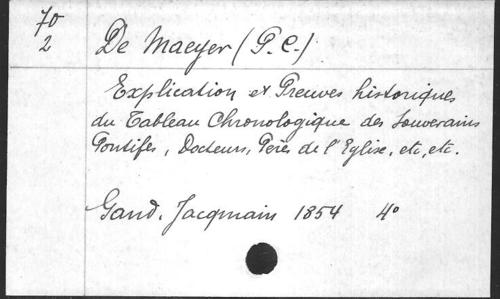 70
2
De Maeyer (P. C.)
Explication et Preuves historiques
du Tableau Chronologique des Souverains
Pontifes, Docteurs, Pères de l'Eglise, etc, etc.
Gand. Jacqmain 1854 4°